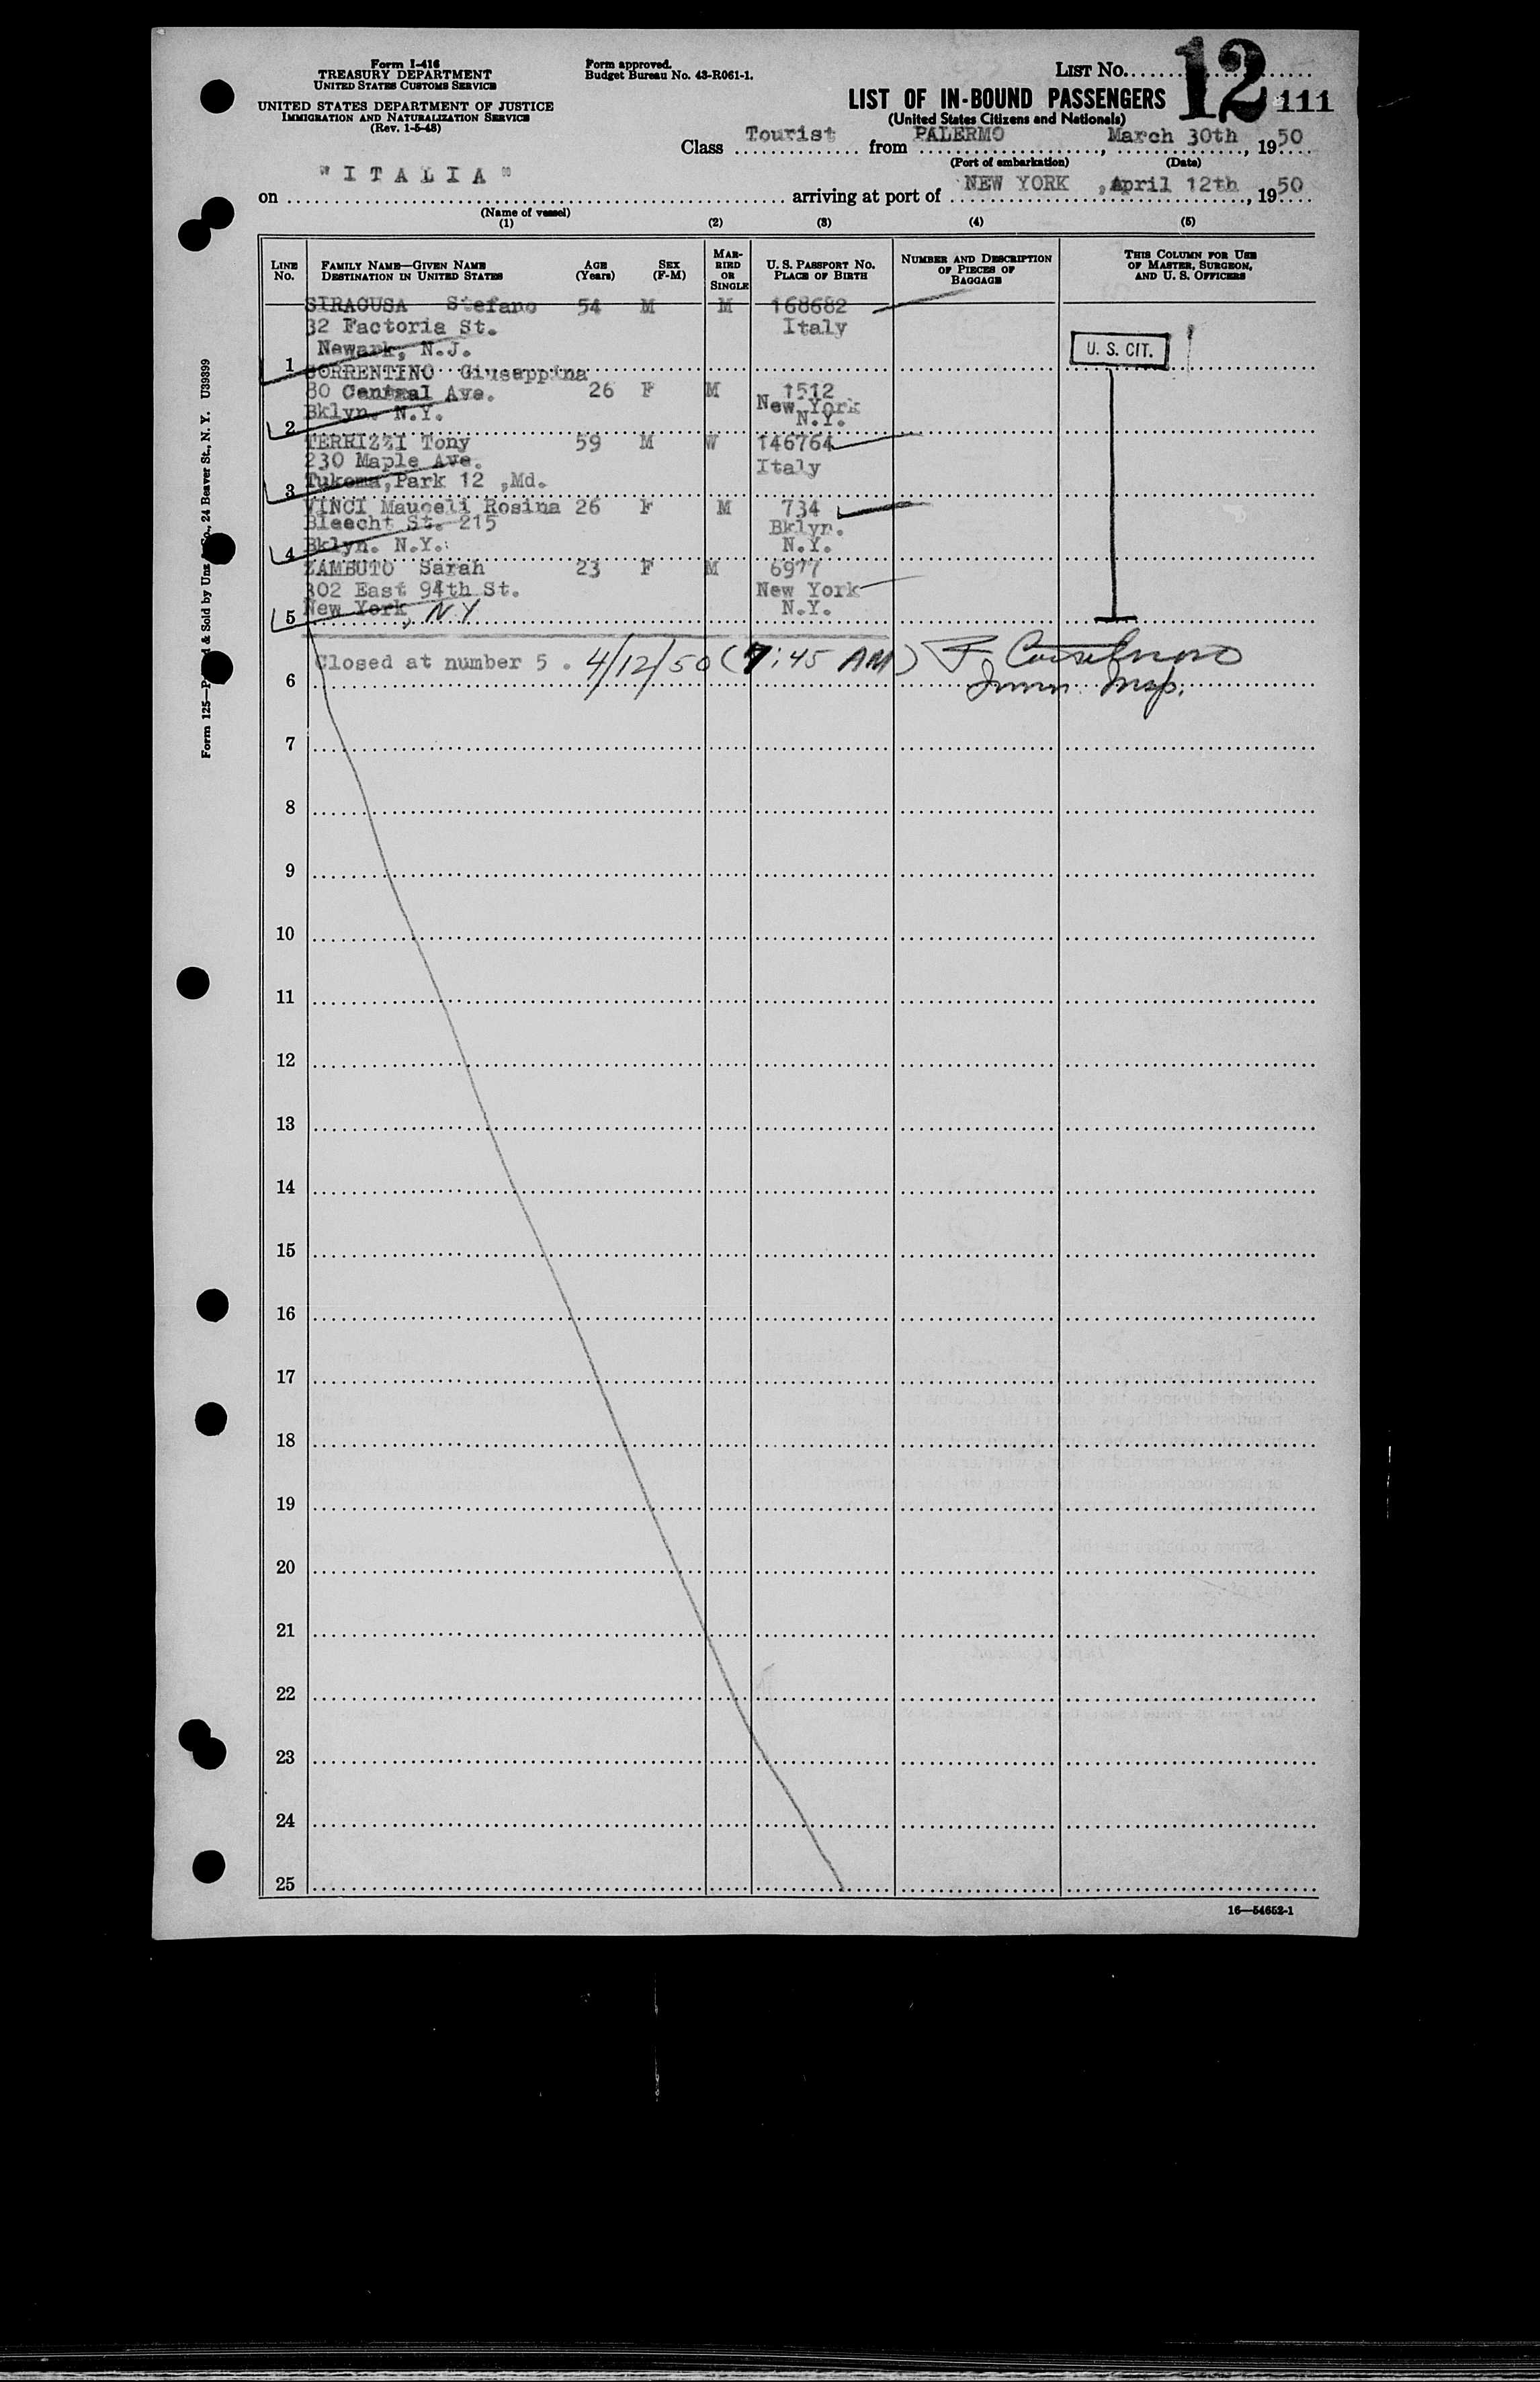 Form I-416
TREASURY DEPARTMENT
UNITED STATES CUSTOMS SERVICE
UNITED STATES DEPARTMENT OF JUSTICE
IMMIGRATION AND NATURALIZATION SERVICE
(Rev. 1-5-48)
Form approved.
Budget Bureau No. 43-R061-1.
LIST No. 12
111
LIST OF IN-BOUND PASSENGERS
(United States Citizens and Nationals)
Class Tourist from PALERMO, March 30th, 1950
(Port of embarkation) (Date)
on "ITALIA" arriving at port of NEW YORK, April 12th, 1950
(Name of vessel)
(1) (2) (3) (4) (5)
LINE No. FAMILY NAME—GIVEN NAME DESTINATION IN UNITED STATES AGE (Years) SEX (F-M) MARRIED OR SINGLE U. S. PASSPORT NO. PLACE OF BIRTH NUMBER AND DESCRIPTION OF PIECES OF BAGGAGE THIS COLUMN FOR USE OF MASTER, SURGEON, AND U. S. OFFICERS
SIRAGUSA Stefano 54 M M 168682
32 Factoria St. Italy
Newark, N.J. U. S. CIT.
1
SORRENTINO Giuseppina
80 Central Ave. 26 F M 1512
Bklyn. N.Y. New York N.Y.
2
TERRIZZI Tony 59 M W 146764
230 Maple Ave. Italy
Tukoma,Park 12 ,Md.
3
VINCI Mauceli Rosina 26 F M 734
Bleecht St. 215 Bklyn.
Bklyn. N.Y. N.Y.
4
ZAMBUTO Sarah 23 F M 6977
302 East 94th St. New York
New York, N.Y N.Y.
5
Closed at number 5 . 4/12/50 (7:45 AM)
Immn. Insp.
6
7
8
9
10
11
12
13
14
15
16
17
18
19
20
21
22
23
24
25
16—54652-1
Form 125—P & Sold by Unz Co., 24 Beaver St., N. Y. U39399